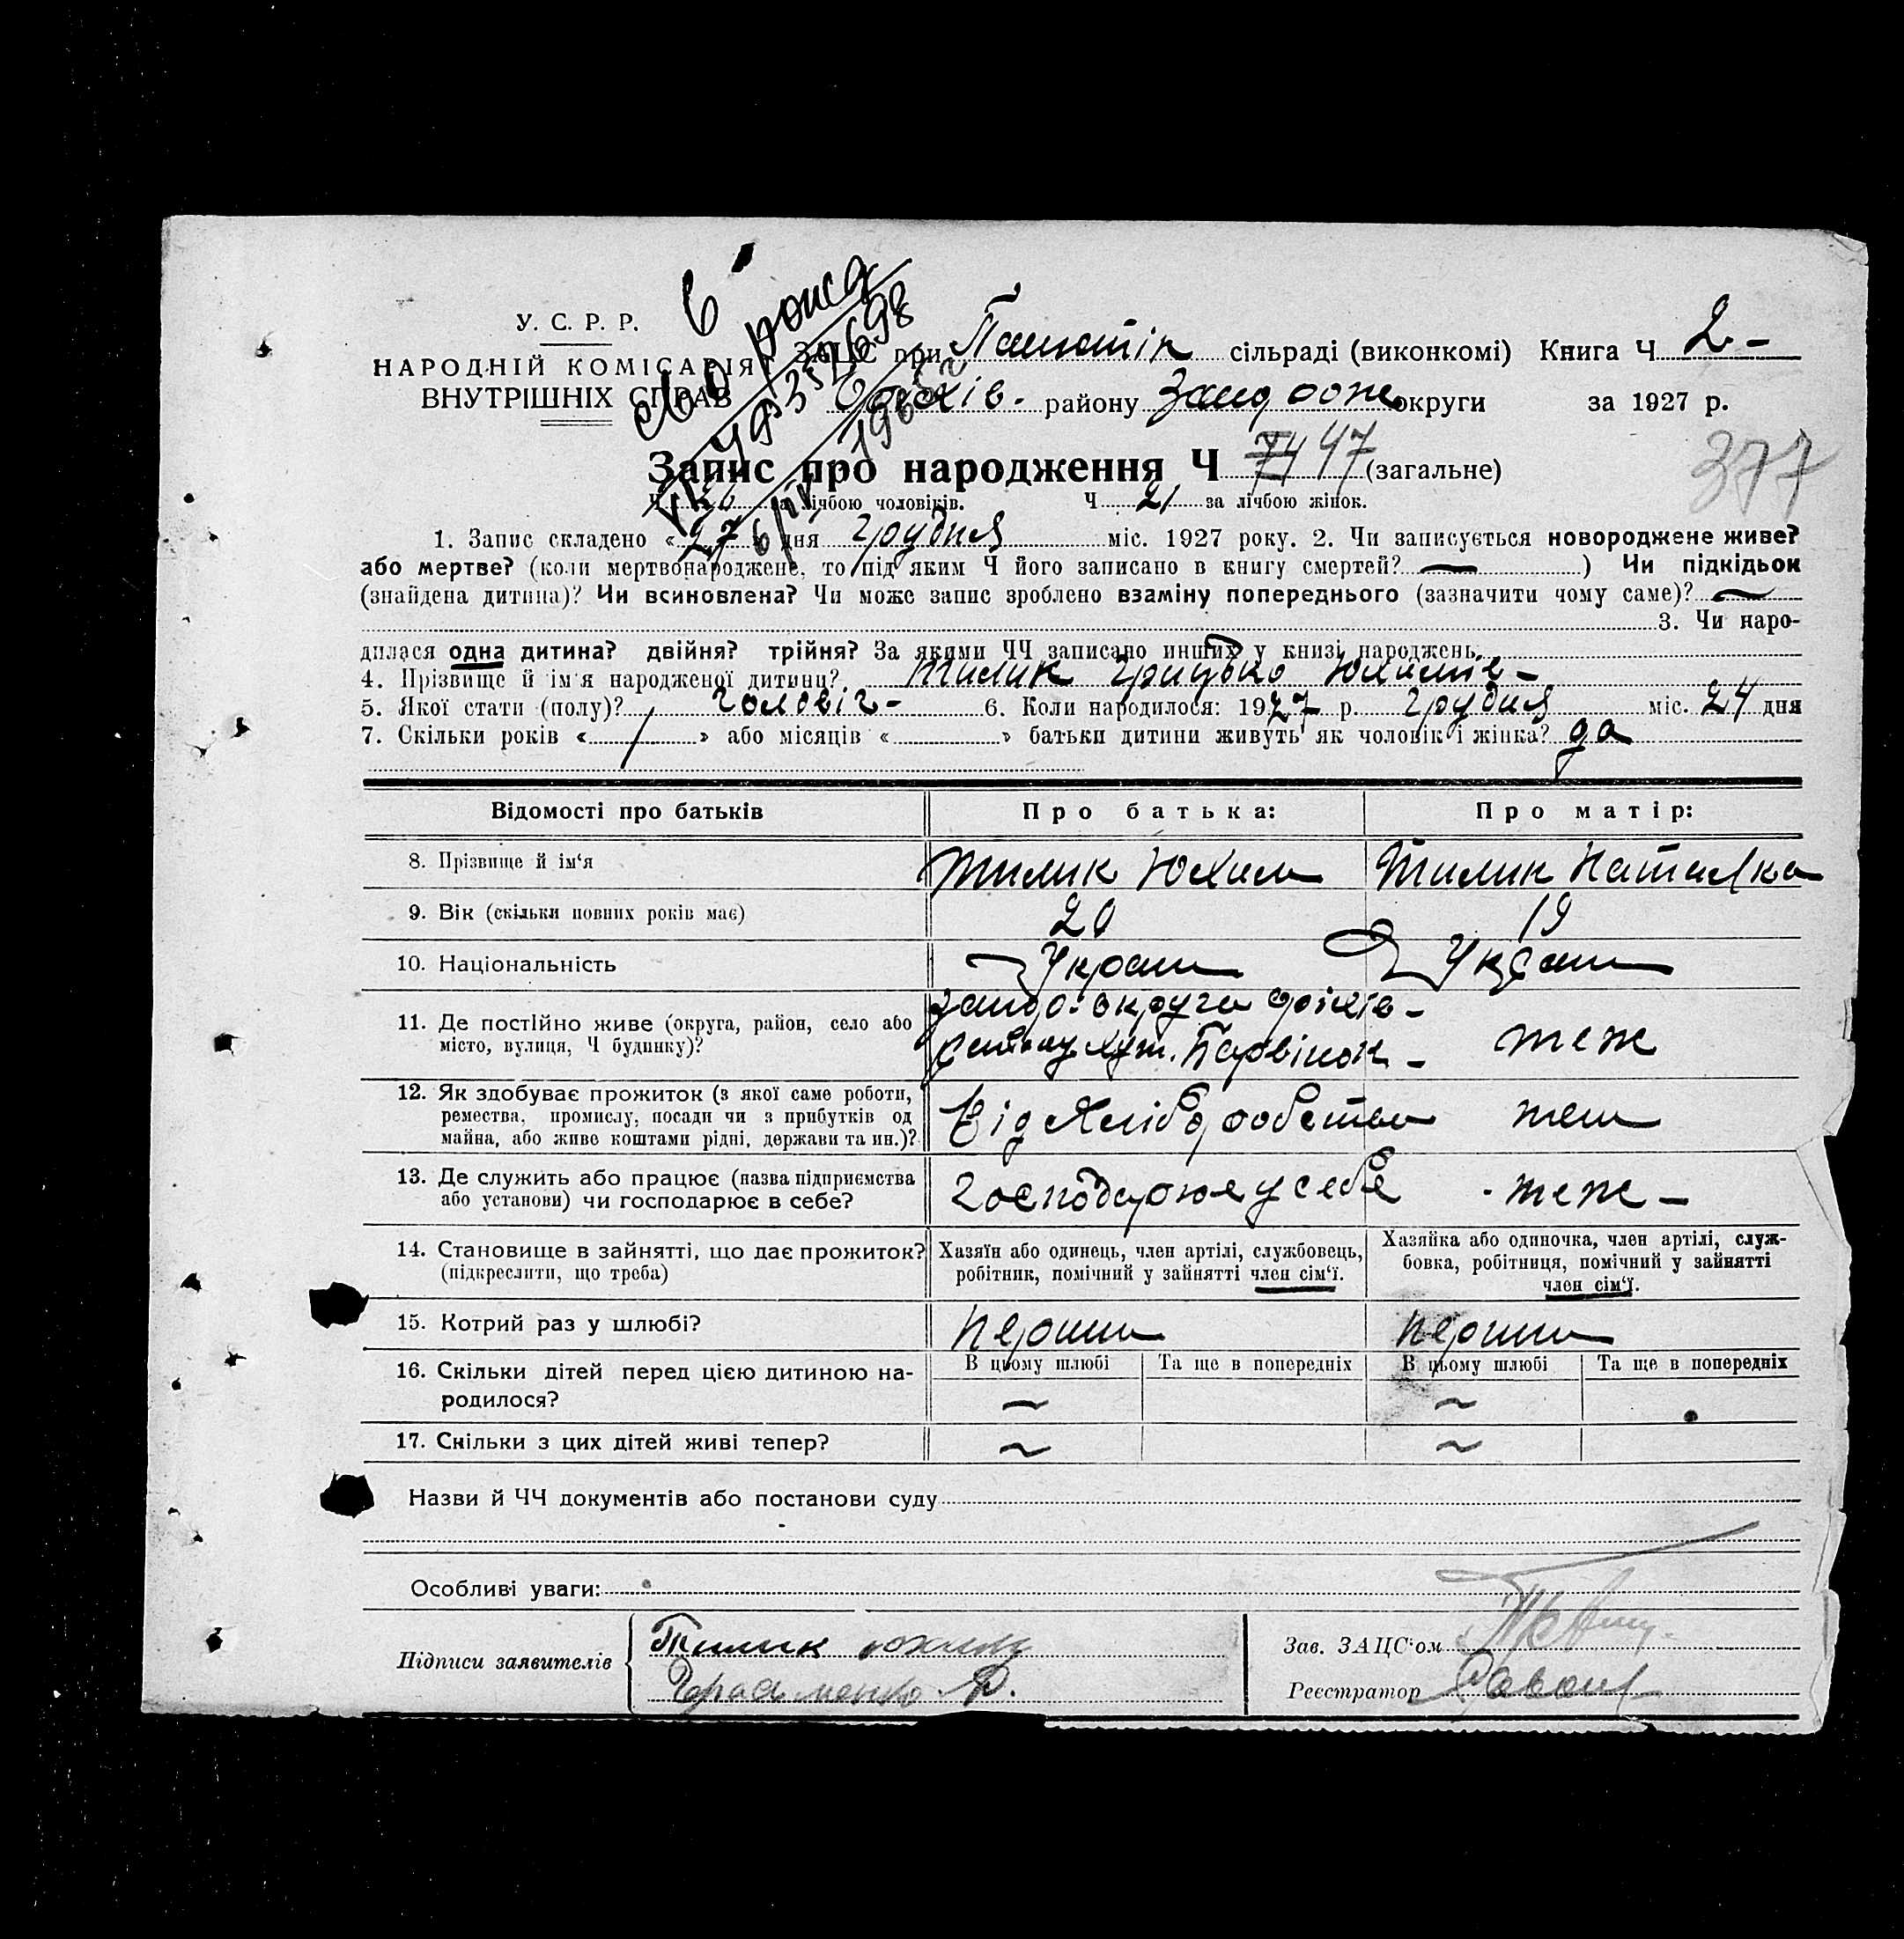 У. С. Р. Р.
НАРОДНІЙ КОМІСАРІЯТ
ВНУТРІШНІХ СПРАВ
ЗАЦС при сільраді (виконкомі) Книга Ч. 2 -
району округи за 1927 р.
377
Запис про народження Ч 47 (загальне)
Ч 26 за лічбою чоловіків. Ч 21 за лічбою жінок.
1. Запис складено «27» дня грудня міс. 1927 року. 2. Чи записується новороджене живе?
або мертве? (коли мертвонароджене, то під яким Ч його записано в книгу смертей? — ) Чи підкідьок
(знайдена дитина)? Чи всиновлена? Чи може запис зроблено взаміну попереднього (зазначити чому саме)?
3. Чи наро-
дилася одна дитина? двійня? трійня? За якими ЧЧ записано инших у книзі народжень
4. Прізвище й ім'я народженої дитини? Тилик Грицько Юхимів -
5. Якої стати (полу)? чоловіч - 6. Коли народилося: 1927 р. грудня міс. 24 дня
7. Скільки років «1» або місяців « » батьки дитини живуть як чоловік і жінка? да
Відомості про батьків Про батька: Про матір:
8. Прізвище й ім'я Тилик Юхим Тилик Наталка
9. Вік (скільки повних років має) 20 19
10. Національність Украин Украин
11. Де постійно живе (округа, район, село або
місто, вулиця, Ч будинку)? округа хут. Барвінок - теж
12. Як здобуває прожиток (з якої саме роботи,
ремества, промислу, посади чи з прибутків од
майна, або живе коштами рідні, держави та ин.)? Від Хліборобства теж
13. Де служить або працює (назва підприємства
або установи) чи господарює в себе? господарює у себе теж -
14. Становище в зайнятті, що дає прожиток?
(підкреслити, що треба)
Хазяїн або одинець, член артілі, службовець,
робітник, помічний у зайнятті член сім'ї.
Хазяйка або одиночка, член артілі, служ-
бовка, робітниця, помічний у зайнятті
член сім'ї.
15. Котрий раз у шлюбі? перший перший
В цьому шлюбі Та ще в попередніх В цьому шлюбі Та ще в попередніх
16. Скільки дітей перед цією дитиною на-
родилося? ~ ~
17. Скільки з цих дітей живі тепер? ~ ~
Назви й ЧЧ документів або постанови суду
Особливі уваги:
Підписи заявителів
Тилик
Герасименко
Зав. ЗАЦС'ом
Реєстратор